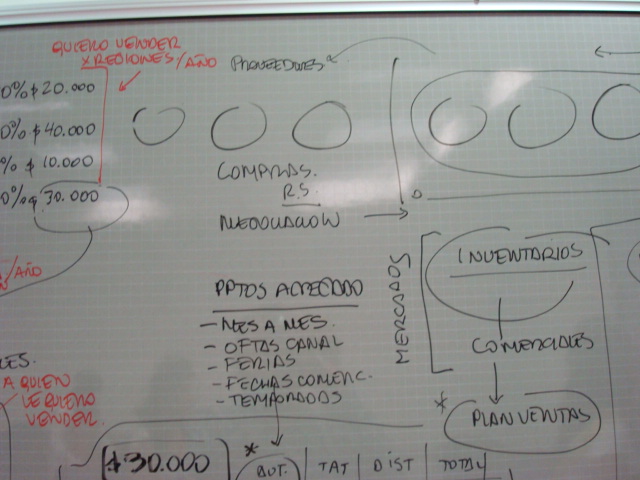 QUIERO VENDER
X REGIONES/AÑO
PROVEEDORES
0% $ 20.000
0% $ 40.000
% $ 10.000
0% $ 30.000
COMPRAS.
R.S.
NEGOCIACION
/AÑO
MERCADOS
INVENTARIOS
COMERCIALES
* PLAN VENTAS
PPTOS
- MES A MES.
- OFTAS CANAL
- FERIAS
- FECHAS COMERC.
- TEMPORADAS
LES.
A QUIEN
LE QUIERO
VENDER.
$30.000
* AUT. TAT DIST TOTAL